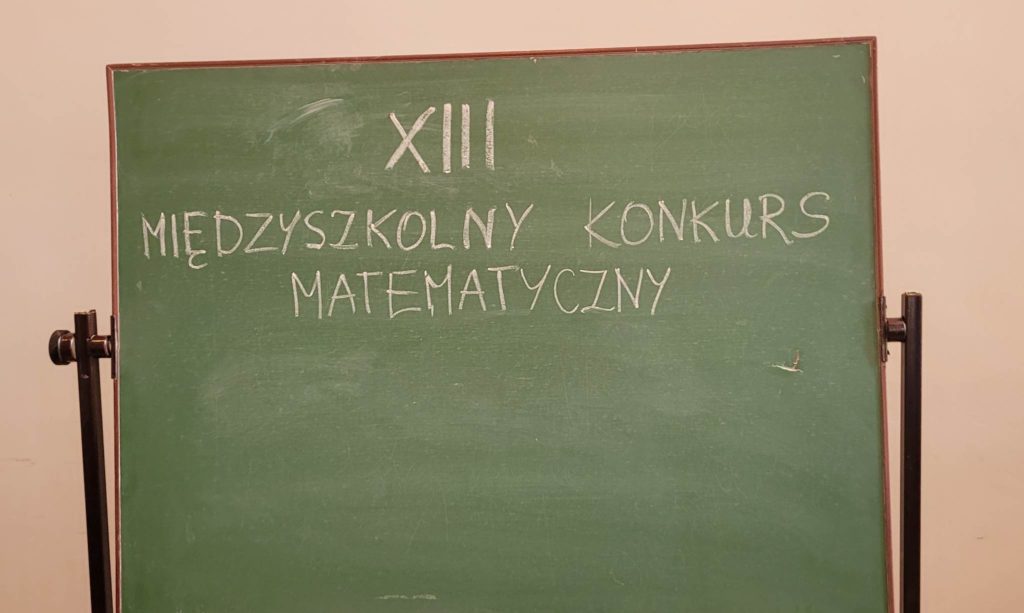 XIII
MIĘDZYSZKOLNY KONKURS
MATEMATYCZNY